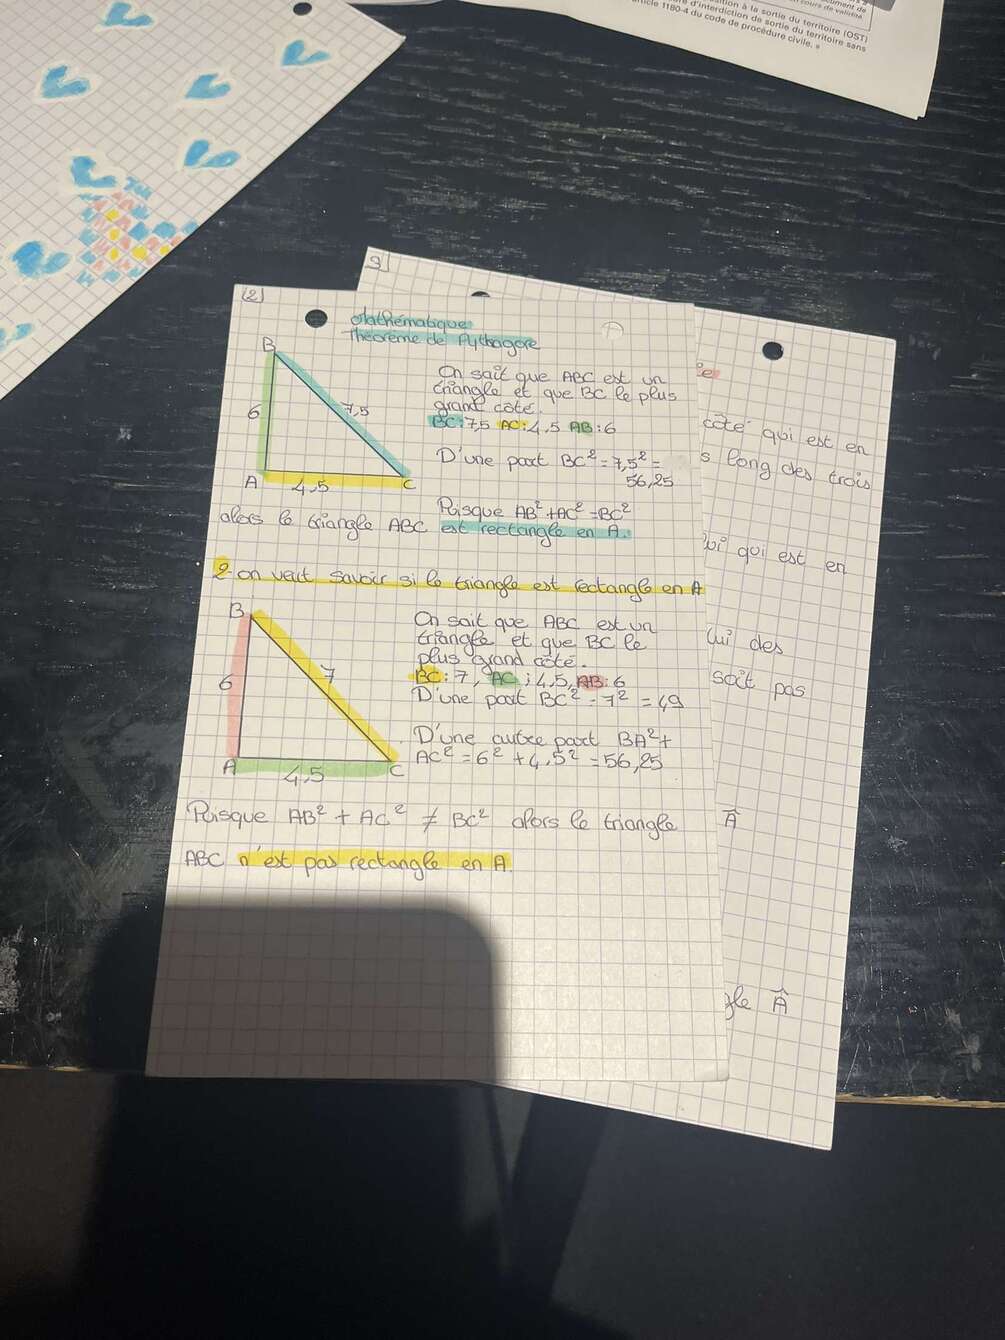 sition à la sortie du territoire (OST)
d'interdiction de sortie du territoire sans
article 1180-4 du code de procédure civile. »
cument de
cours de validité
3)
(2)
Mathématique
Théorème de Pythagore
B
6
7,5
A
4,5
C
On sait que ABC est un
triangle et que BC le plus
grand côté.
BC:7,5 AC:4,5 AB:6
D'une part BC² = 7,5² =
56,25
Puisque AB²+AC²=BC²
alors le triangle ABC est rectangle en A.
2-on veut savoir si le triangle est rectangle en A
B
6
7
A
4,5
C
On sait que ABC est un
triangle et que BC le
plus grand côté.
BC:7, AC:4,5, AB:6
D'une part BC² = 7² = 49
D'une autre part BA²+
AC² = 6² + 4,5² = 56,25
Puisque AB² + AC² ≠ BC² alors le triangle
ABC n'est pas rectangle en A.
ie
côté qui est en
s long des trois
lui qui est en
lui des
soit pas
Â
gle Â